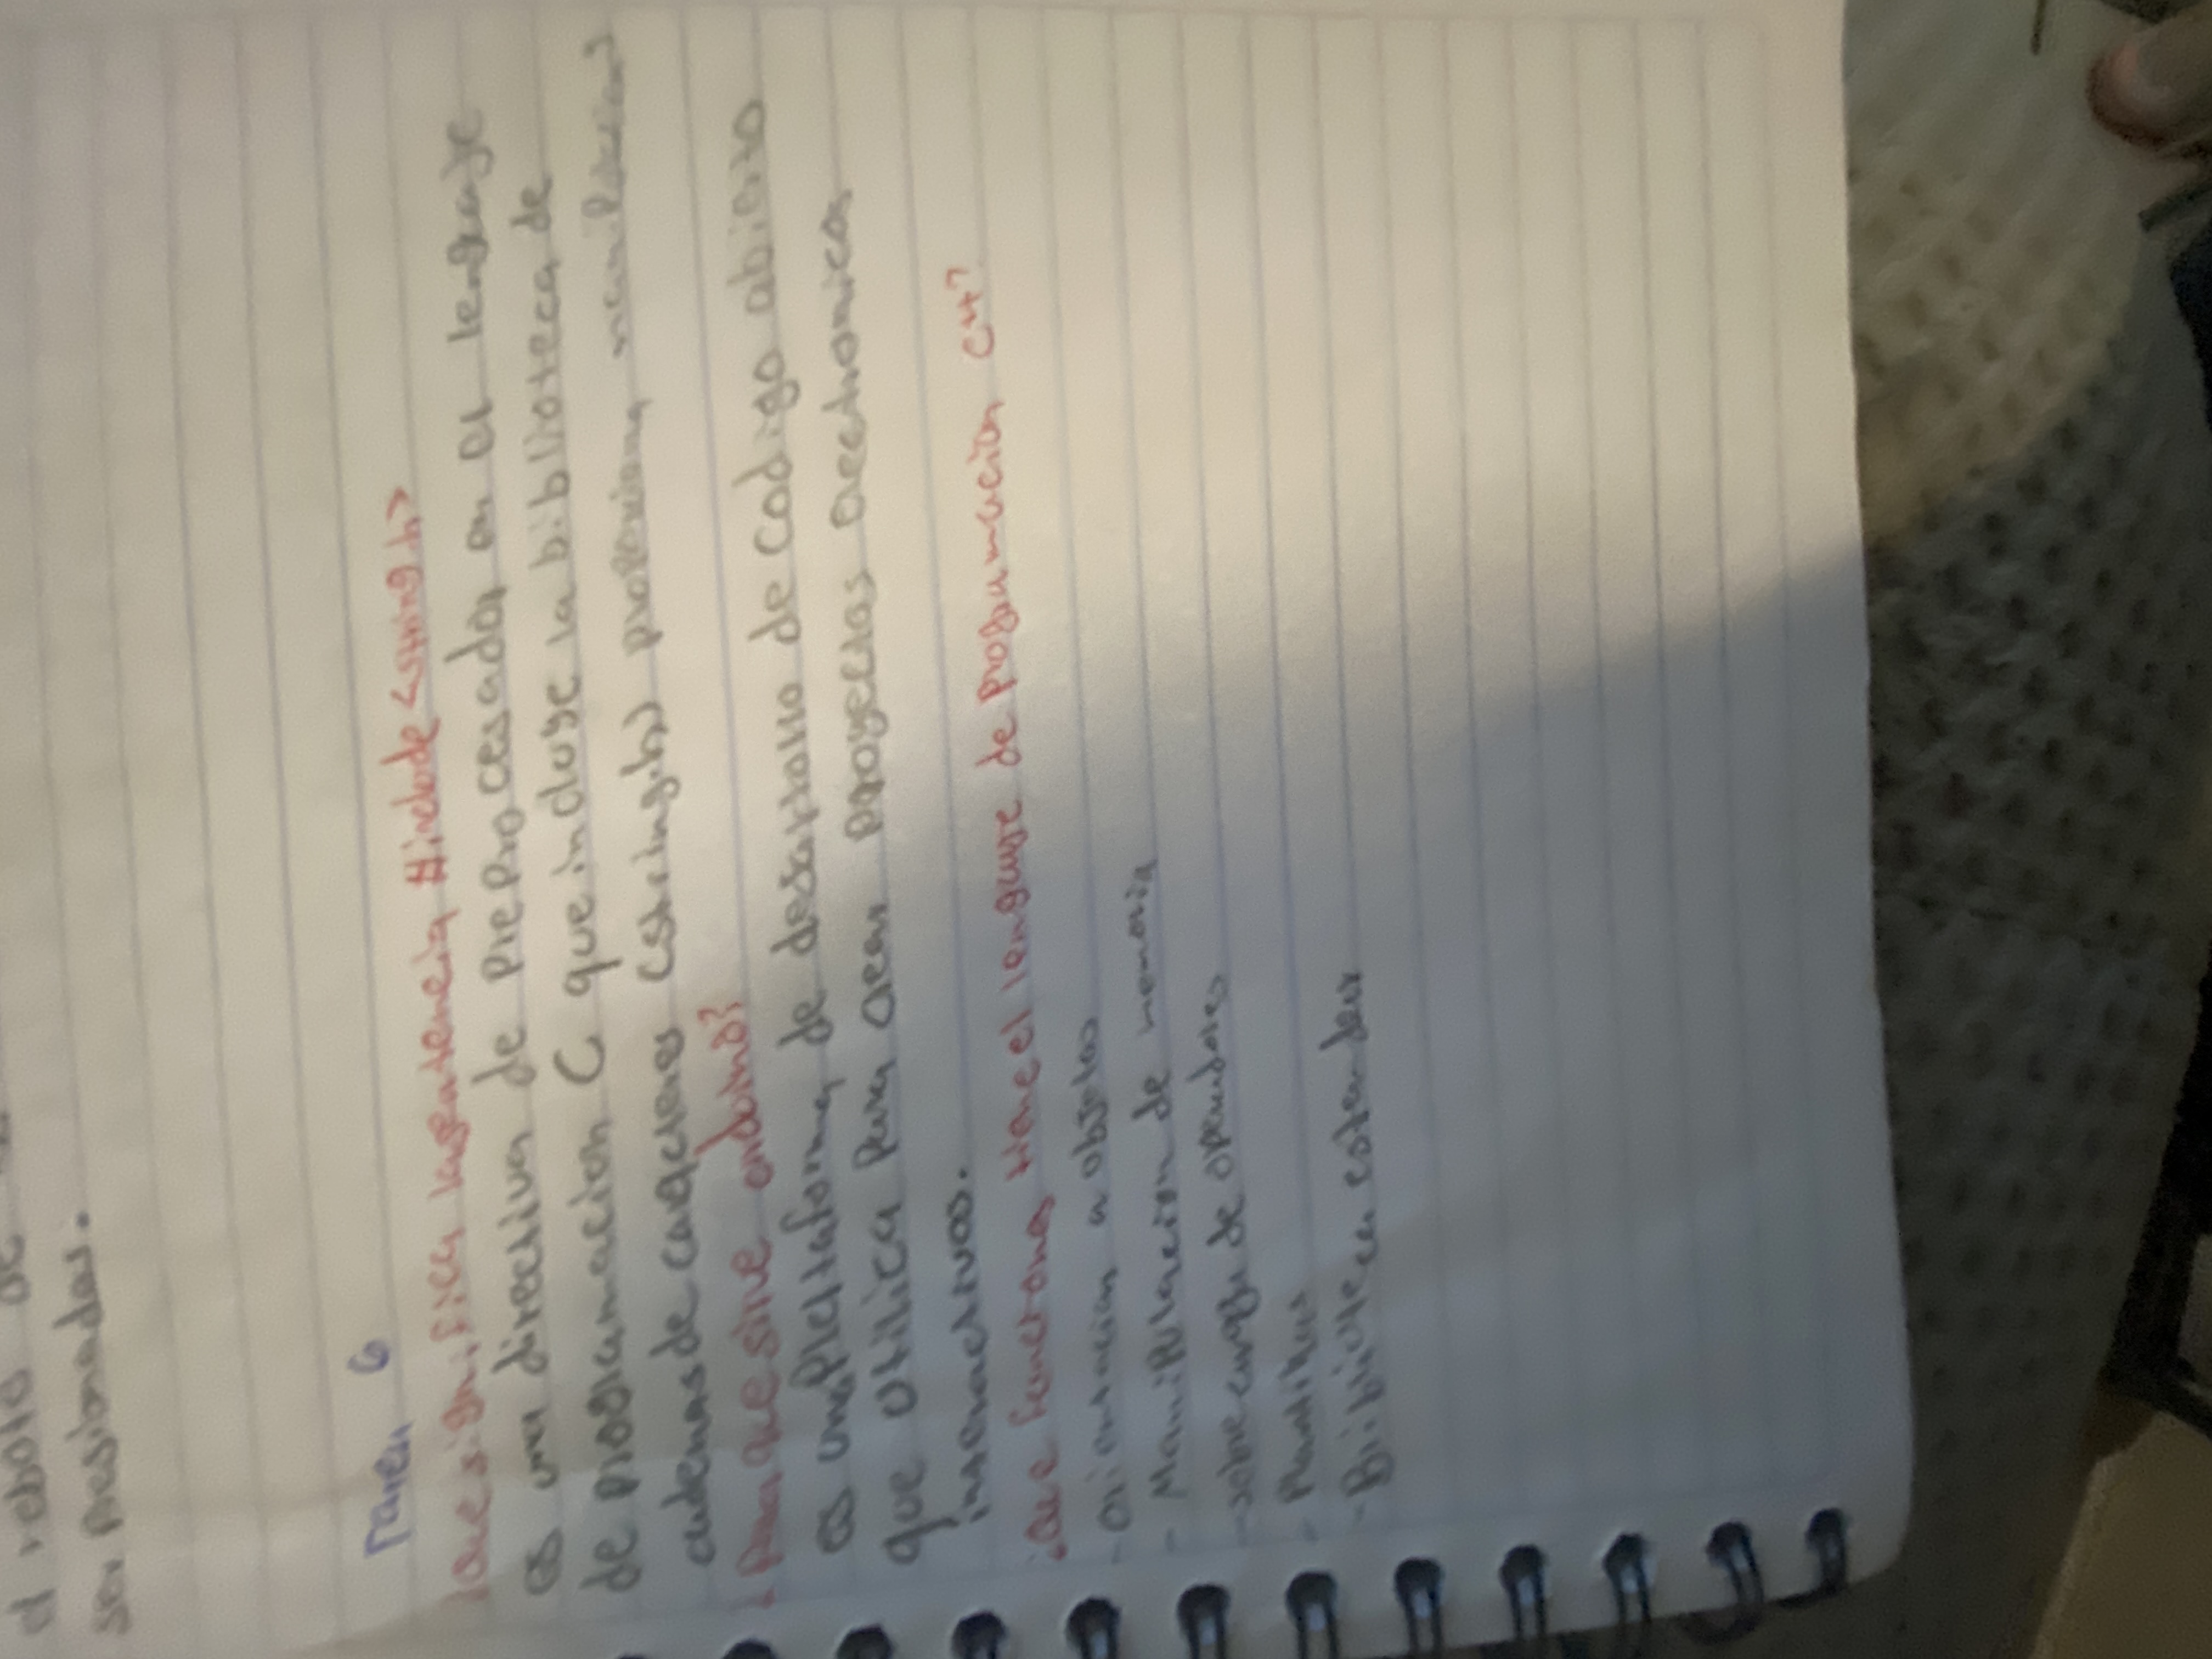 el rebote de
ser presionadas.
Tarea 6
¿Que significa la sentencia #include <string.h>
es una directiva de preprocesador en el lenguaje
de programacion C que incluye la biblioteca de
cadenas de caracteres (string.h) proporciona
¿Para que sirve arduino?
es una plataforma de desarrollo de codigo abierto
que utiliza para crear proyectos electronicos
interactivos.
¿Que funciones tiene el lenguaje de programación C++?
- Orientación a objetos
- Manipulación de memoria
- sobrecarga de operadores
- Plantillas
- Biblioteca estandar